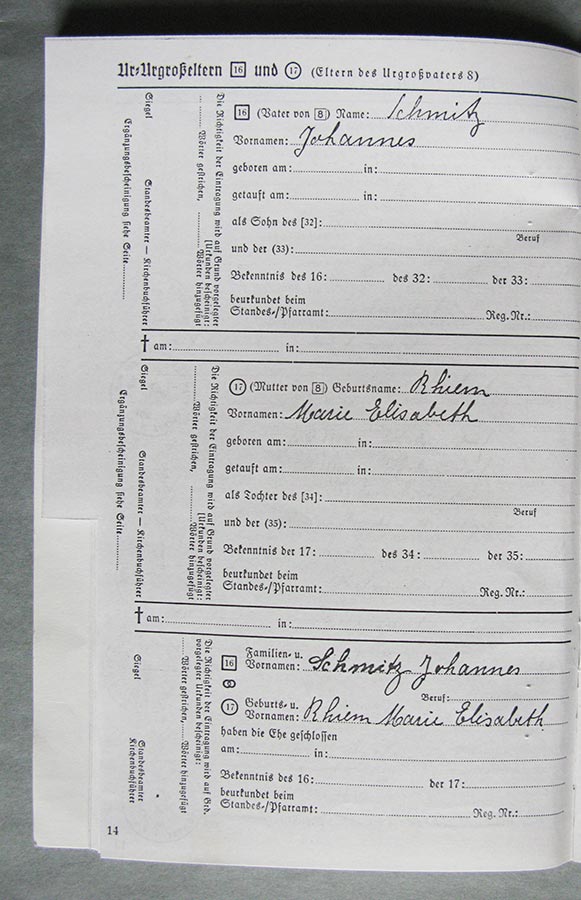 Ur-Urgroßeltern 16 und 17 (Eltern des Urgroßvaters 8)
16 (Vater von 8) Name: Schmitz
Vornamen: Johannes
geboren am: in:
getauft am: in:
als Sohn des [32]:
Beruf
und der (33):
Bekenntnis des 16: des 32: der 33:
beurkundet beim
Standes-/Pfarramt: Reg.Nr.:
Die Richtigkeit der Eintragung wird auf Grund vorgelegter
Urkunden bescheinigt:
Wörter gestrichen, Wörter hinzugefügt
Siegel Standesbeamter — Kirchenbuchführer
Ergänzungsbescheinigung siehe Seite
† am: in:
17 (Mutter von 8) Geburtsname: Rhiem
Vornamen: Marie Elisabeth
geboren am: in:
getauft am: in:
als Tochter des [34]:
Beruf
und der (35):
Bekenntnis der 17: des 34: der 35:
beurkundet beim
Standes-/Pfarramt: Reg.Nr.:
Die Richtigkeit der Eintragung wird auf Grund vorgelegter
Urkunden bescheinigt:
Wörter gestrichen, Wörter hinzugefügt
Siegel Standesbeamter — Kirchenbuchführer
Ergänzungsbescheinigung siehe Seite
† am: in:
16 Familien- u.
Vornamen: Schmitz Johannes
Beruf:
17 Geburts- u.
Vornamen: Rhiem Marie Elisabeth
haben die Ehe geschlossen
am: in:
Bekenntnis des 16: der 17:
beurkundet beim
Standes-/Pfarramt: Reg.Nr.:
Die Richtigkeit der Eintragung wird auf Grd.
vorgelegter Urkunden bescheinigt:
Wörter gestrichen, Wörter hinzugefügt
Siegel Standesbeamter
Kirchenbuchführer
14